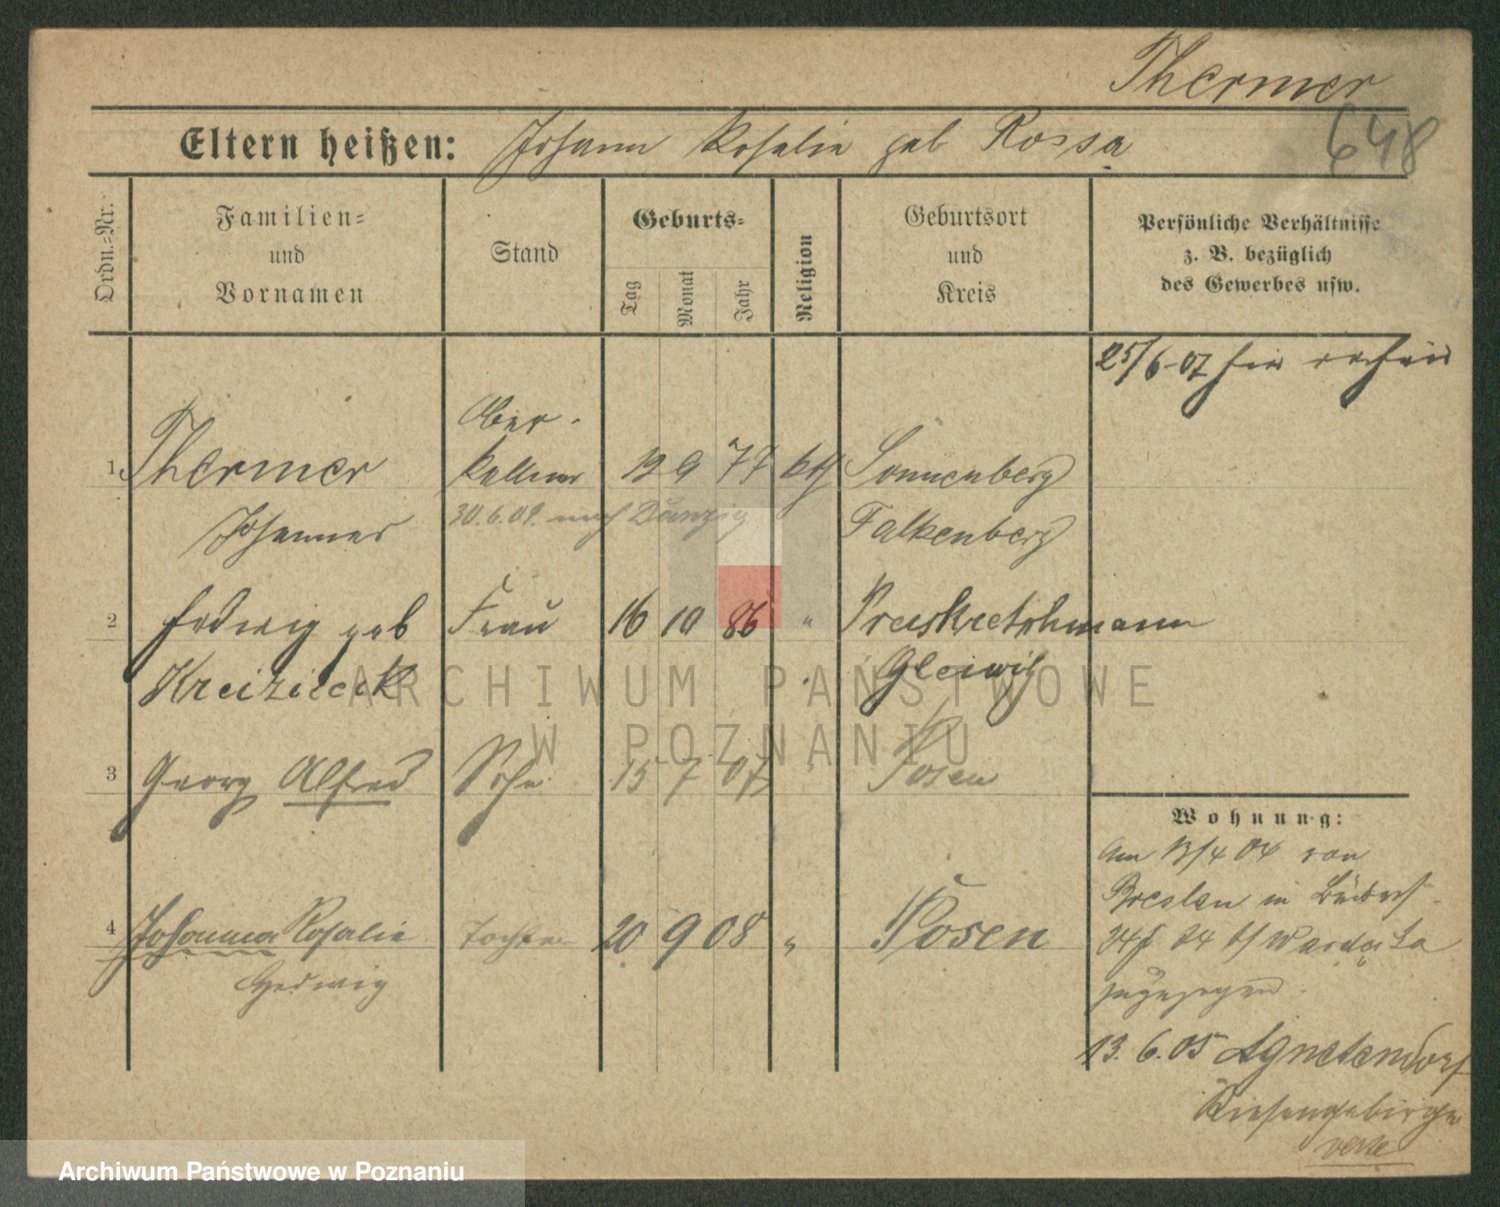 Thermer
648
Eltern heißen: Johann Rosalie geb Rossa
Ordn.-Nr.
Familien-
und
Vornamen
Stand
Geburts-
Tag
Monat
Jahr
Religion
Geburtsort
und
Kreis
Persönliche Verhältnisse
z. B. bezüglich
des Gewerbes usw.
25/6 07 hier
Ober-
1 Thermer Kellner 12 9 77 kth Sonnenberg
Johannes 30.6.09. nach Danzig Falkenberg
2 Hedwig geb Frau 16 10 86 "
Kreizieck Gleiwitz
3 Georg Alfred Sohn 15 7 07 Posen
4 Johanna Rosalie Tochter 20 9 08 " Posen
Hedwig
Wohnung:
Am 13/4 04 von
Breslau in
zugezogen
13. 6. 05 Agnetendorf
Riesengebirge
verte
ARCHIWUM PAŃSTWOWE
W POZNANIU
Archiwum Państwowe w Poznaniu